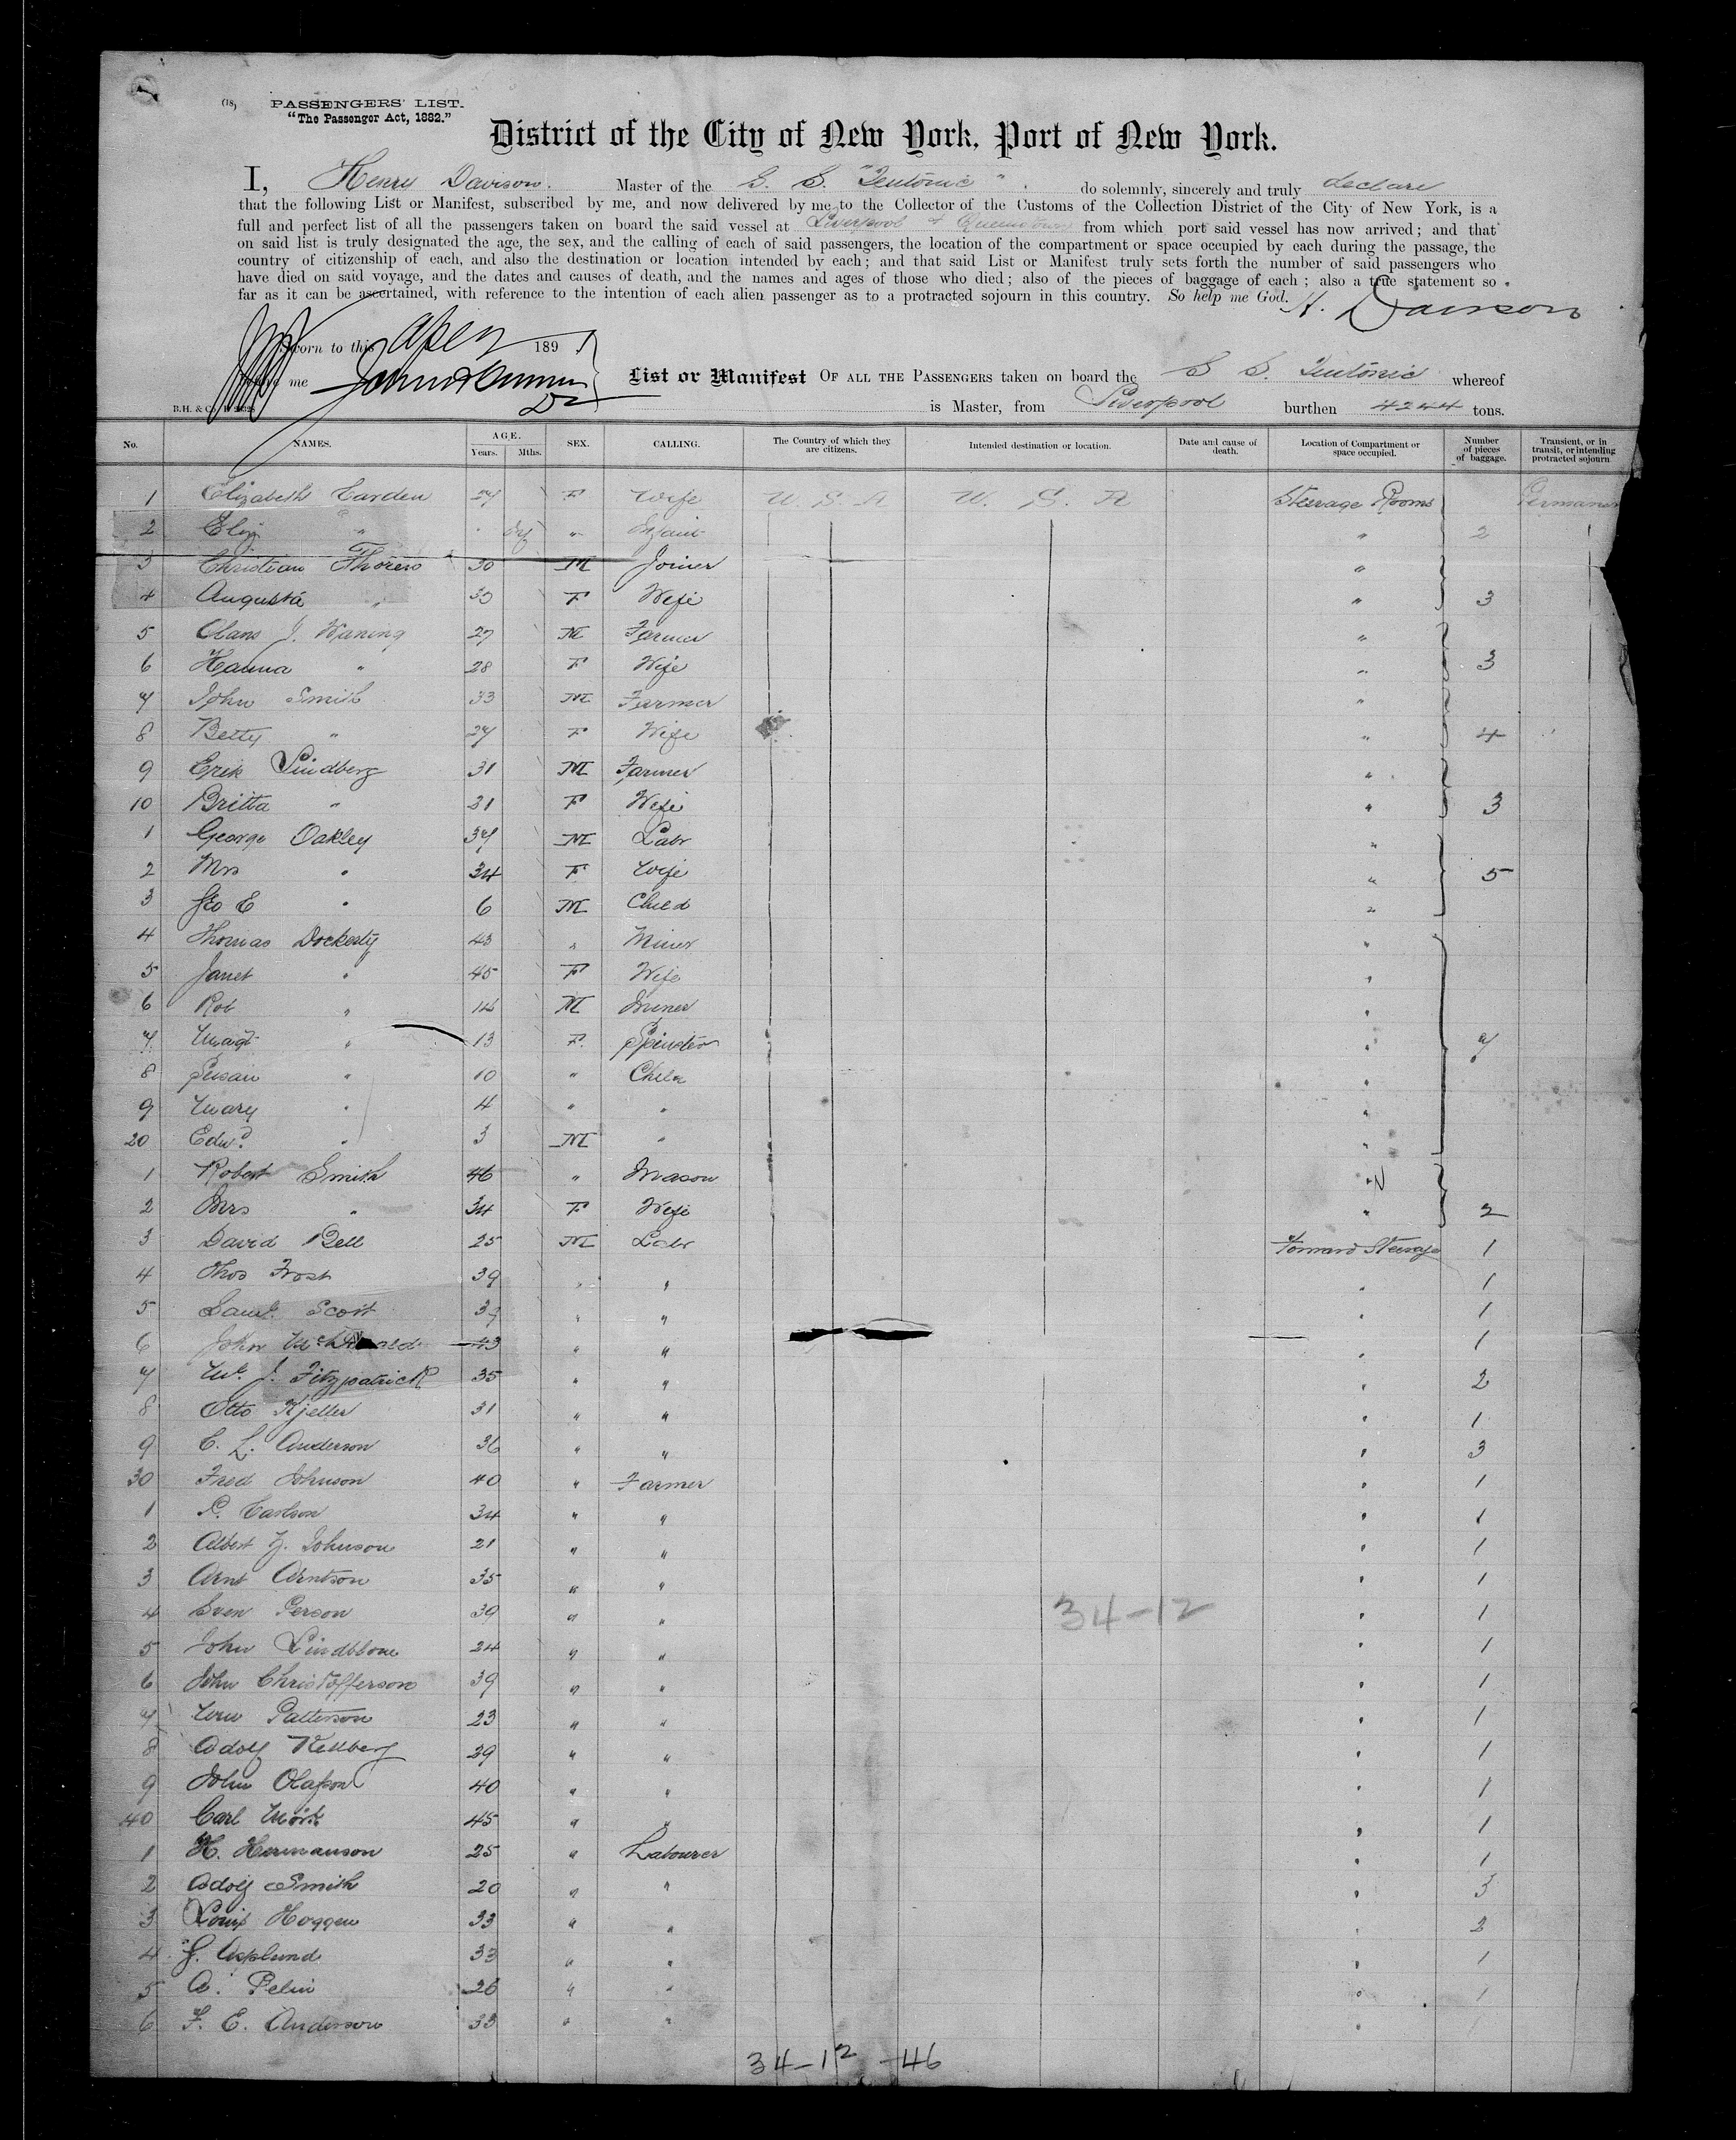 (18) PASSENGERS' LIST.
"The Passenger Act, 1882."
District of the City of New York, Port of New York.
I, Henry Davison. Master of the S. S. "Teutonic". do solemnly, sincerely and truly declare
that the following List or Manifest, subscribed by me, and now delivered by me to the Collector of the Customs of the Collection District of the City of New York, is a
full and perfect list of all the passengers taken on board the said vessel at Liverpool & Queenstown from which port said vessel has now arrived; and that
on said list is truly designated the age, the sex, and the calling of each of said passengers, the location of the compartment or space occupied by each during the passage, the
country of citizenship of each, and also the destination or location intended by each; and that said List or Manifest truly sets forth the number of said passengers who
have died on said voyage, and the dates and causes of death, and the names and ages of those who died; also of the pieces of baggage of each; also a true statement so
far as it can be ascertained, with reference to the intention of each alien passenger as to a protracted sojourn in this country. So help me God. H. Davison
Sworn to this 189
me
List or Manifest OF ALL THE PASSENGERS taken on board the S S. Teutonic whereof
is Master, from Liverpool burthen 4244 tons.
B.H. & Co.
No. NAMES. AGE. Years. Mths. SEX. CALLING. The Country of which they are citizens. Intended destination or location. Date and cause of death. Location of Compartment or space occupied. Number of pieces of baggage. Transient, or in transit, or intending protracted sojourn
1 Elizabeth Carden 27 F Wife U. S. A U. S. A Steerage Rooms Permanent
2 Eliz " " Infant " 2
3 Christian Thoren 30 M Joiner "
4 Augusta " 30 F Wife " 3
5 Olans J. Waning 27 M Farmer "
6 Hanna " 28 F Wife " 3
7 John Smith 33 M Farmer "
8 Betty " 27 F Wife " 4
9 Erik Lindberg 31 M Farmer "
10 Britta " 31 F Wife " 3
1 George Oakley 37 M Labr "
2 Mrs " 34 F Wife " 5
3 Geo E " 6 M Child "
4 Thomas Dockerty 43 " Miner "
5 Janet " 45 F Wife "
6 Rob " 14 M Miner "
7 Magt " 13 F. Spinster " 7
8 Susan " 10 " Child "
9 Mary " 4 " " "
20 Edwd " 3 M " "
1 Robert Smith 46 " Mason "
2 Mrs " 34 F Wife " 2
3 David Bell 25 M Labr Forward Steerage 1
4 Thos Frost 39 " " " 1
5 Saml. Scott 39 " " " 1
6 John McDonald 43 " " " 1
7 J. Fitzpatrick 35 " " " 2
8 Otto Kjeller 31 " " " 1
9 C. L. Anderson 36 " " " 3
30 Fred Johnson 40 " Farmer " 1
1 P. Carlson 34 " " " 1
2 Albert Johnson 21 " " " 1
3 Arnt Arntson 35 " " " 1
4 Sven Person 39 " " " 1
34-12
5 John Lindblom 24 " " " 1
6 John Christofferson 39 " " " 1
7 Patterson 23 " " " 1
8 Adolf Kellberg 29 " " " 1
9 John Olafson 40 " " " 1
40 Carl Mörk 45 " " " 1
1 H. Hermanson 25 " Labourer " 1
2 Adolf Smith 20 " " " 3
3 Louis Hoggen 33 " " " 2
4 J. Asplund 33 " " " 1
5 A. Pelin 26 " " " 1
6 F. E. Anderson 33 " " " 1
34-12 -46